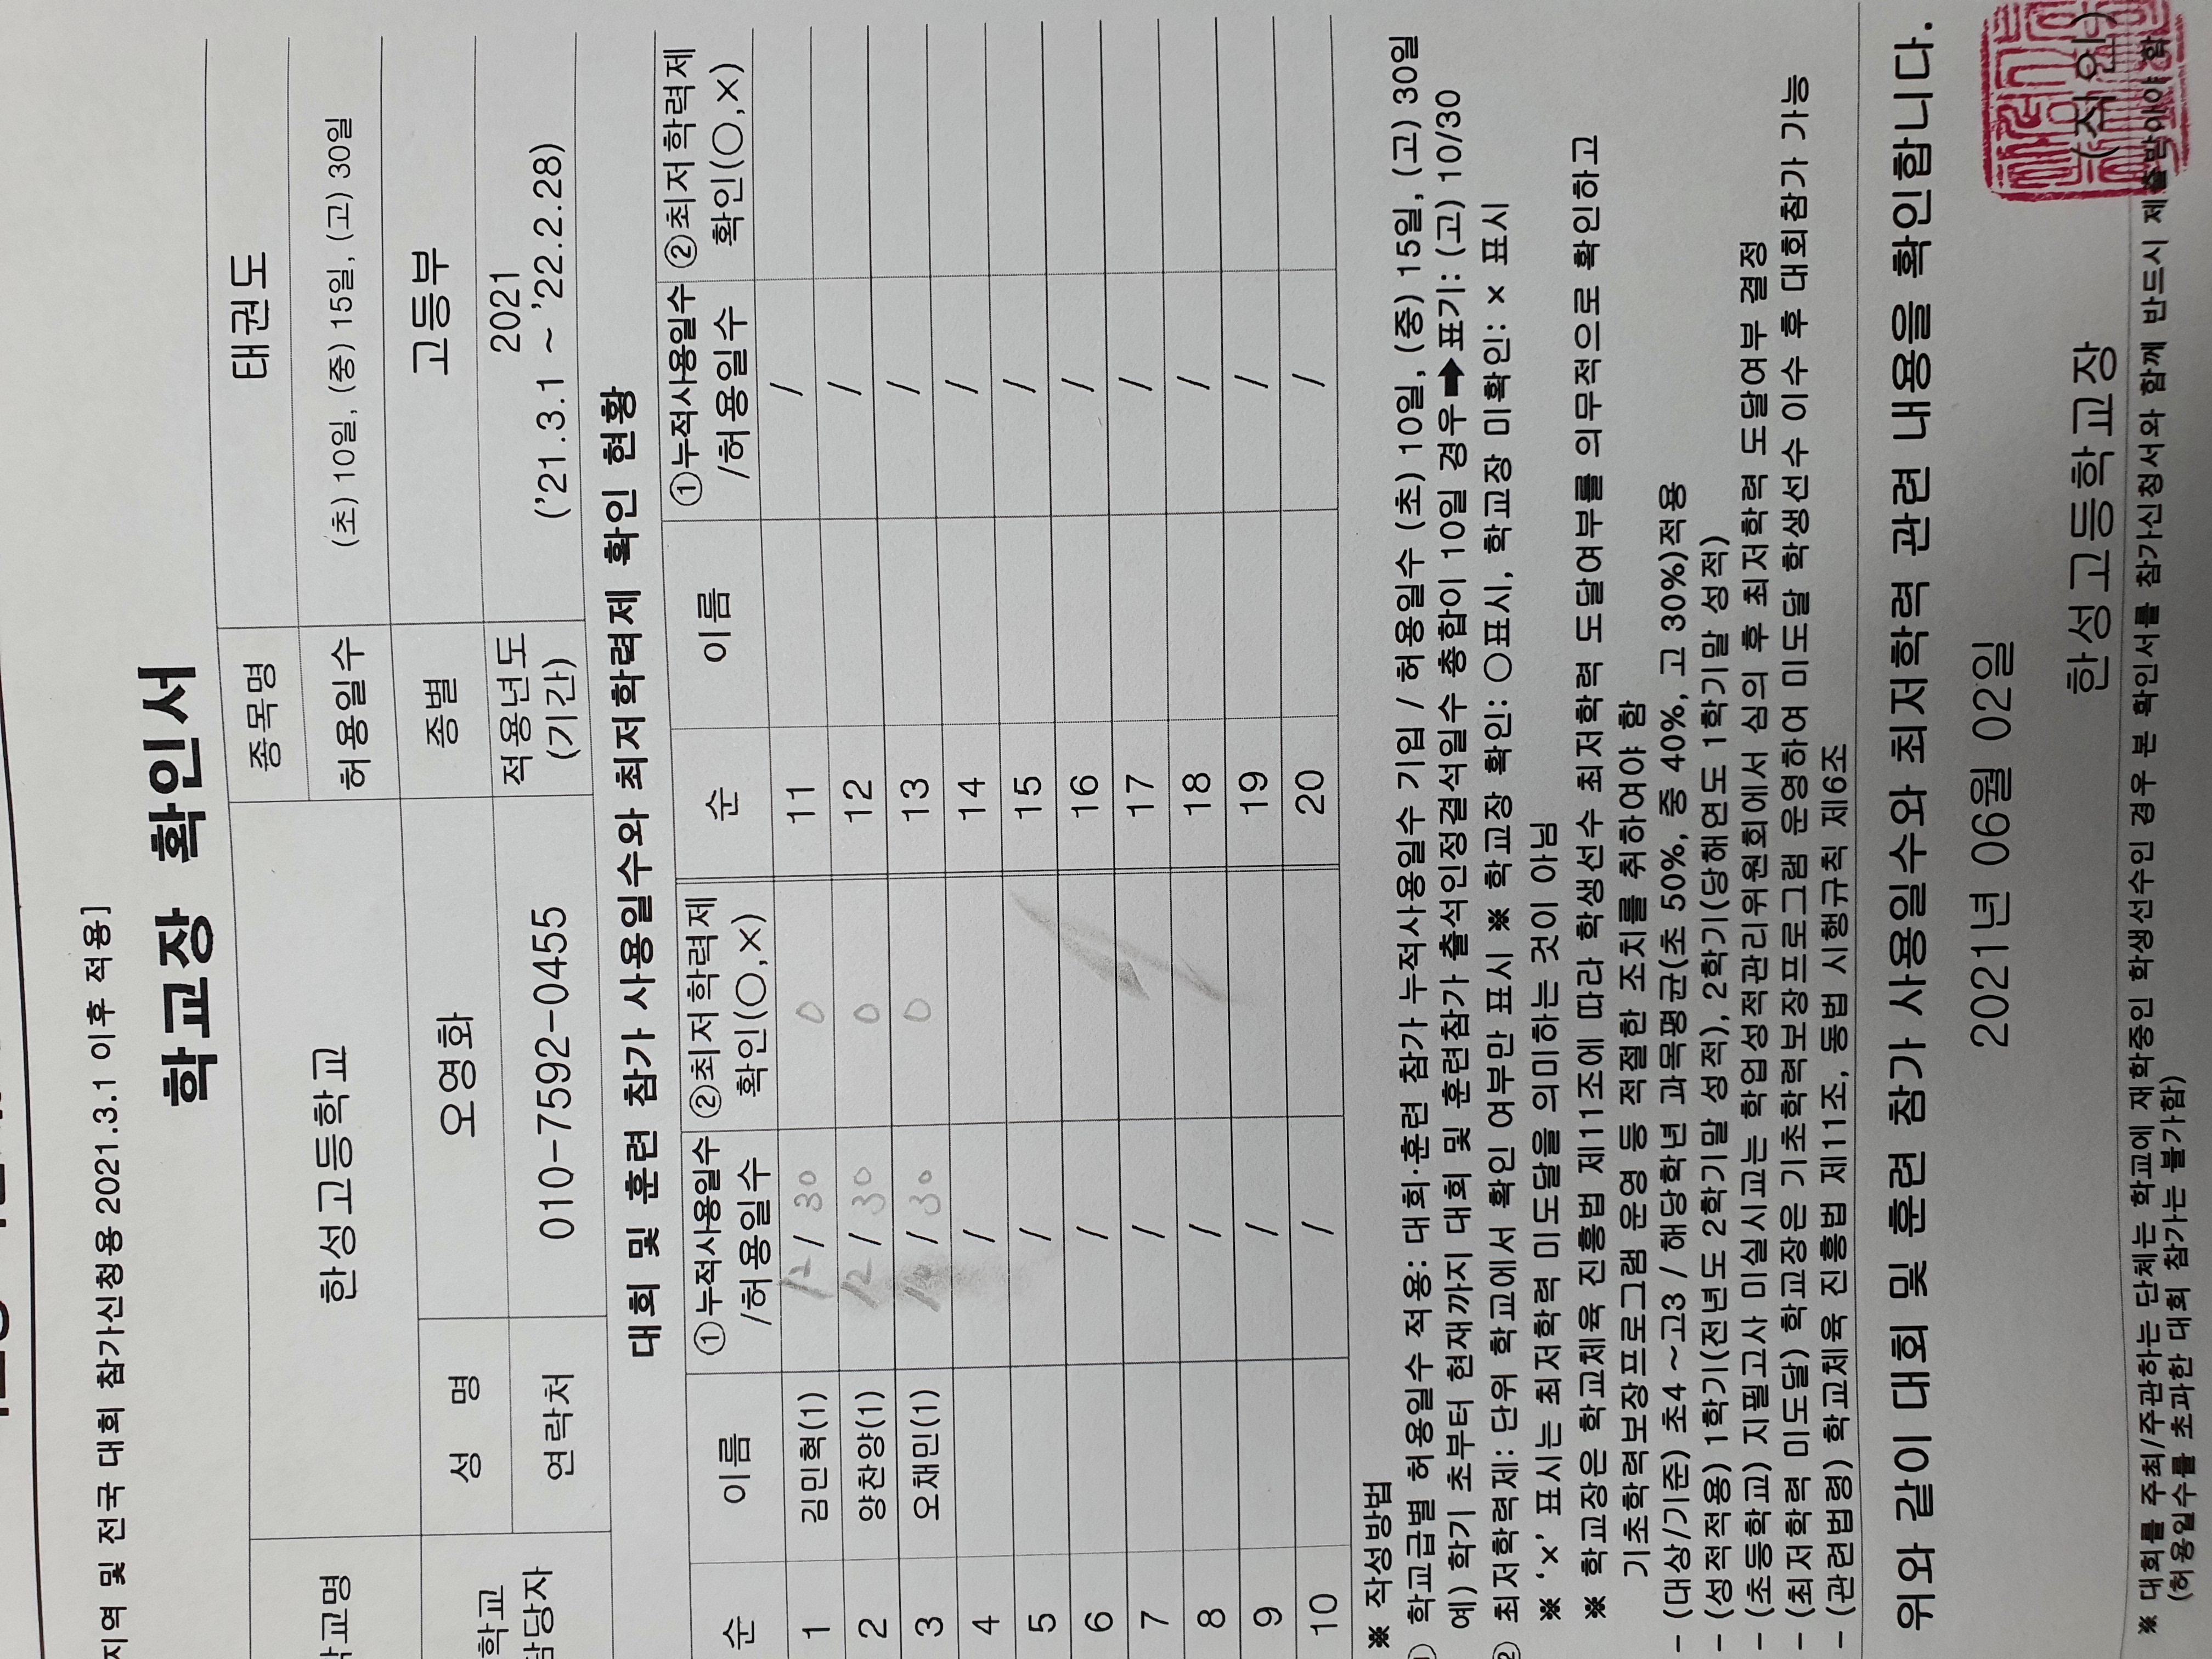 지역 및 전국 대회 참가신청용 2021.3.1 이후 적용]
학교장 확인서
학교명 한성고등학교 종목명 태권도
허용일수 (초) 10일, (중) 15일, (고) 30일
학교 담당자 성 명 오영화 종별 고등부
연락처 010-7592-0455 적용년도 (기간) 2021 ('21.3.1 ~ '22.2.28)
대회 및 훈련 참가 사용일수와 최저학력제 확인 현황
순 이름 ①누적사용일수 /허용일수 ②최저학력제 확인(○,×) 순 이름 ①누적사용일수 /허용일수 ②최저학력제 확인(○,×)
1 김민혁(1) 12 / 30 ○ 11 /
2 양찬양(1) 12 / 30 ○ 12 /
3 오채민(1) / 30 ○ 13 /
4 / 14 /
5 / 15 /
6 / 16 /
7 / 17 /
8 / 18 /
9 / 19 /
10 / 20 /
※ 작성방법
① 학교급별 허용일수 적용: 대회·훈련 참가 누적사용일수 기입 / 허용일수 (초) 10일, (중) 15일, (고) 30일
예) 학기 초부터 현재까지 대회 및 훈련참가 출석인정결석일수 총합이 10일 경우➡표기: (고) 10/30
② 최저학력제: 단위 학교에서 확인 여부만 표시 ※ 학교장 확인: ○표시, 학교장 미확인: × 표시
※ '×' 표시는 최저학력 미도달을 의미하는 것이 아님
※ 학교장은 학교체육 진흥법 제11조에 따라 학생선수 최저학력 도달여부를 의무적으로 확인하고
기초학력보장프로그램 운영 등 적절한 조치를 취하여야 함
- (대상/기준) 초4 ~고3 / 해당학년 과목평균(초 50%, 중 40%, 고 30%)적용
- (성적적용) 1학기(전년도 2학기말 성적), 2학기(당해연도 1학기말 성적)
- (초등학교) 지필고사 미실시교는 학업성적관리위원회에서 심의 후 최저학력 도달여부 결정
- (최저학력 미도달) 학교장은 기초학력보장프로그램 운영하여 미도달 학생선수 이수 후 대회참가 가능
- (관련법령) 학교체육 진흥법 제11조, 동법 시행규칙 제6조
위와 같이 대회 및 훈련 참가 사용일수와 최저학력 관련 내용을 확인합니다.
2021년 06월 02일
한성고등학교장 (직인)
※ 대회를 주최/주관하는 단체는 학교에 재학중인 학생선수인 경우 본 확인서를 참가신청서와 함께 반드시 제출받아야 함
(허용일수를 초과한 대회 참가는 불가함)